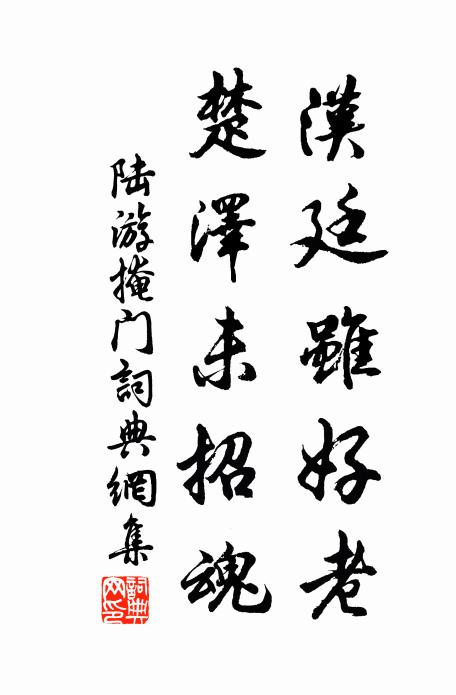 漢廷雖好老
楚澤未招魂
陆游掩门詞典網集
詞典网印